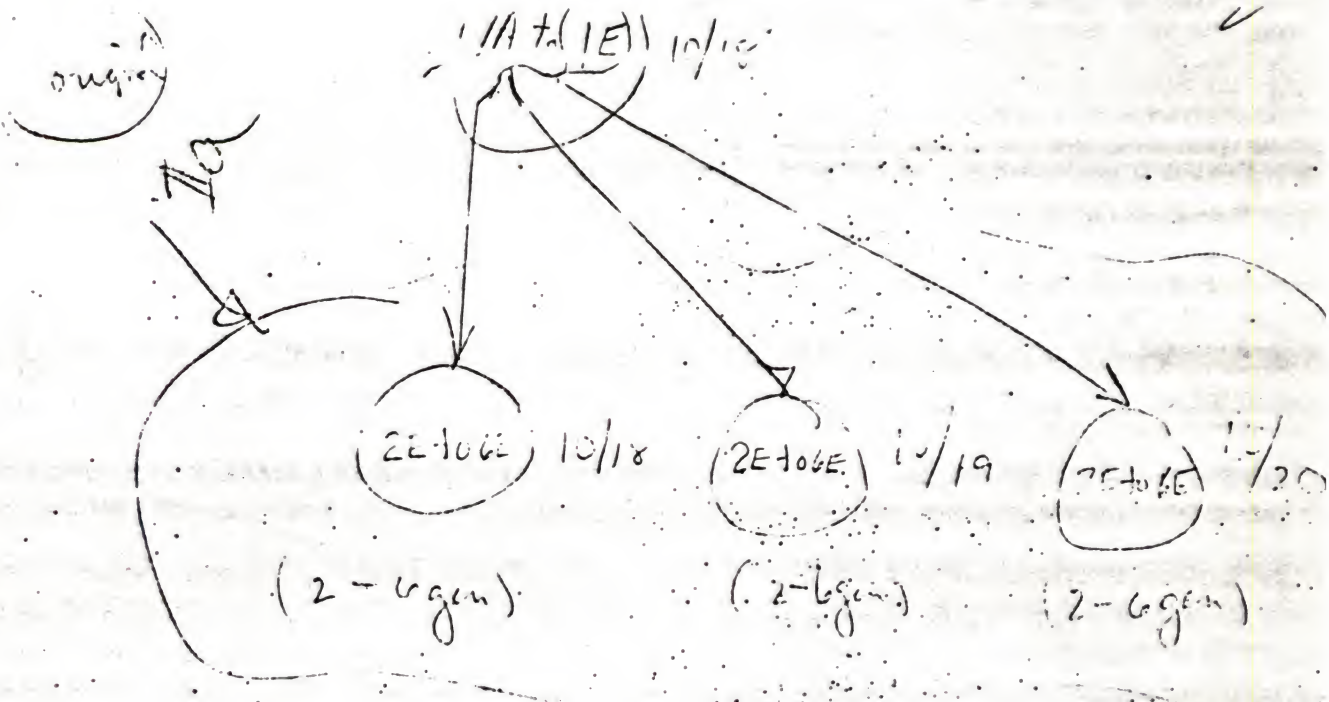 to (1E) 10/18
No
2E to 6E 10/18
2E to 6E 10/19
2E to 6E 10/20
(2 - 6 gen)
(2 - 6 gen)
(2 - 6 gen)